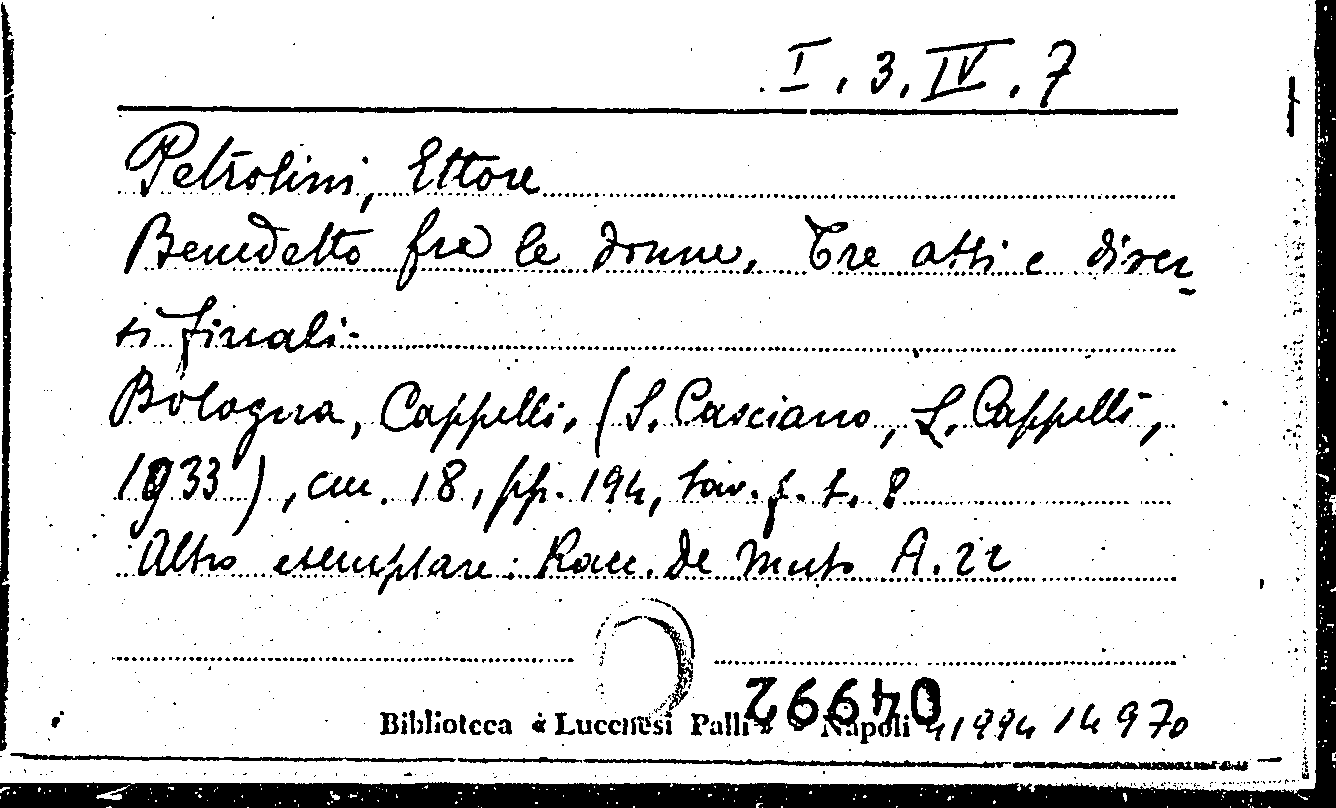 I. 3. IV. 7
Petrolini, Ettore
Benedetto fra le donne. Tre atti e diver-
si finali.
Bologna, Cappelli, (S. Casciano, L. Cappelli,
1933), cm. 18, pp. 194, tav. f. t. 8
Altro esemplare: Racc. De Muto A. 22
04992
Biblioteca « Lucchesi Palli » Napoli
1994 14970